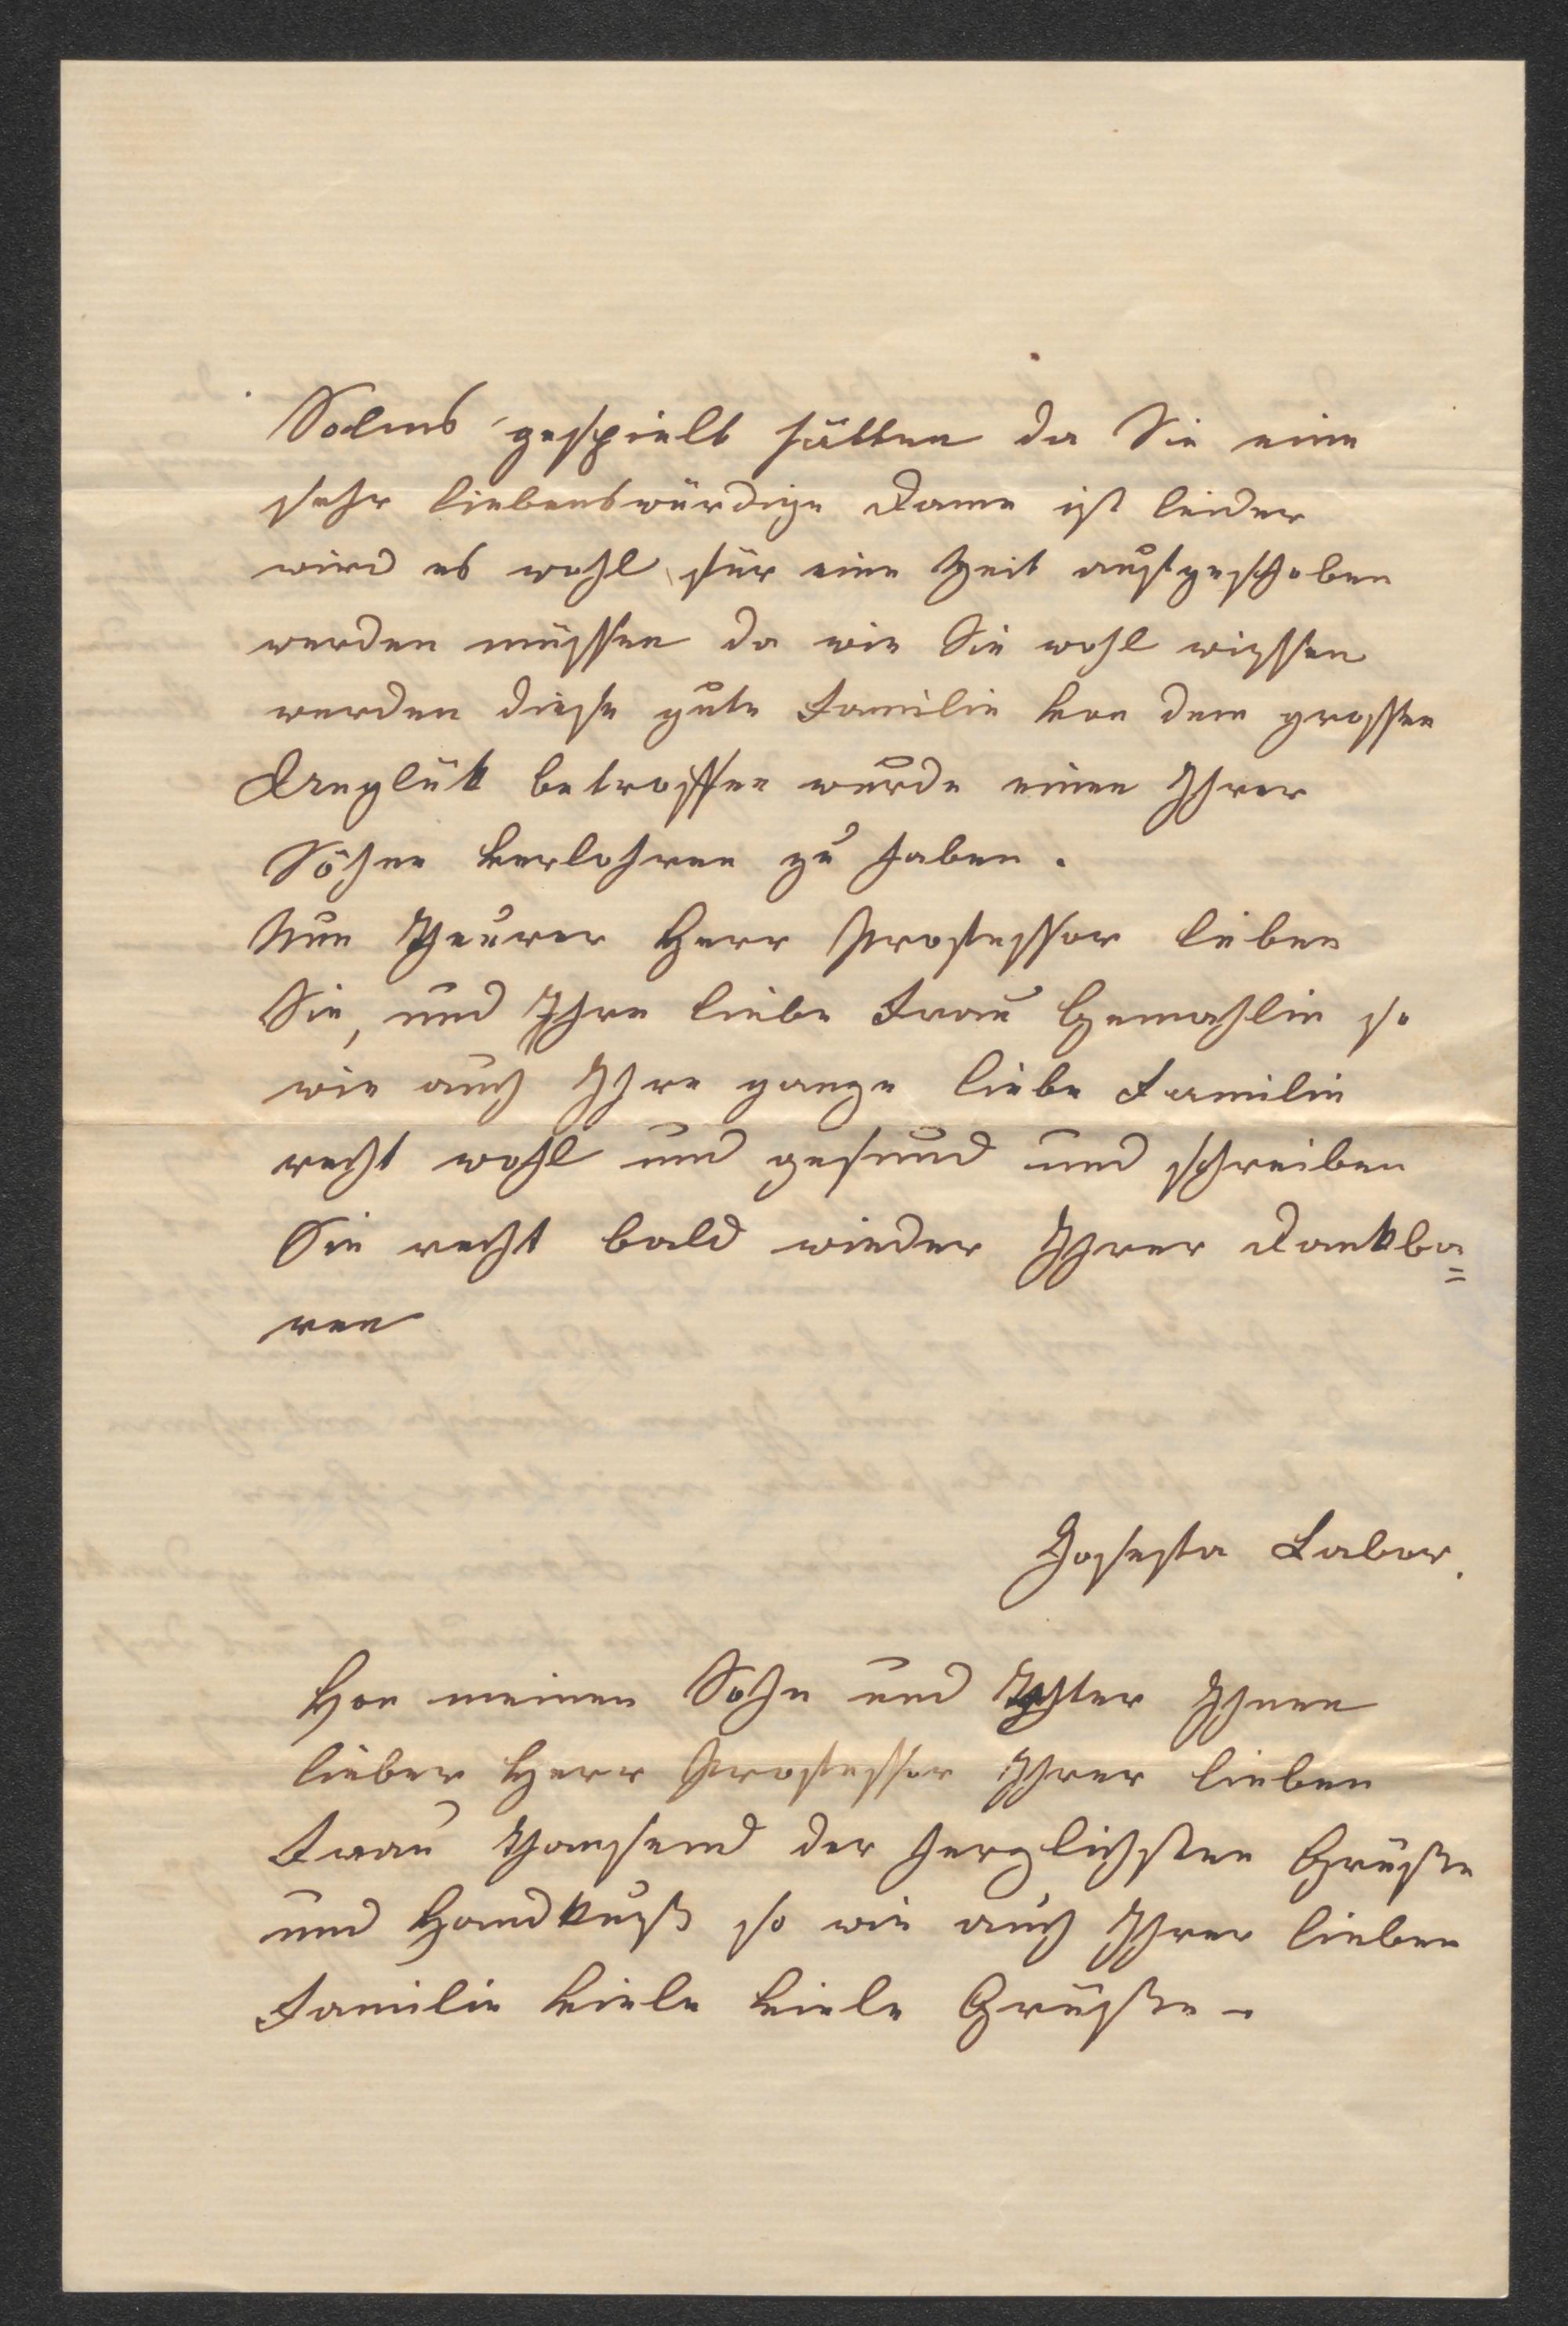 Solms gespielt hätten da Sie eine
sehr liebenswürdige Dame ist leider
wird es wohl für eine Zeit aufgeschoben
werden müssen da wie Sie wohl wissen
werden diese gute Familie von dem grossen
Unglük betroffen wurde einen Ihrer
Söhne verlohren zu haben.
Nun Theurer Herr Professor leben
Sie, und Ihre liebe Frau Gemahlin so
wie auch Ihre ganze liebe Familie
recht wohl und gesund und schreiben
Sie recht bald wieder Ihrer Dankba=
ren
Josefa Labor.
Von meinen Sohn und Ihnen
lieber Herr Professor Ihrer lieben
Frau Thausend der herzlichsten Grüße
und Handkuß so wie auch Ihrer lieben
Familie viele viele Grüße.